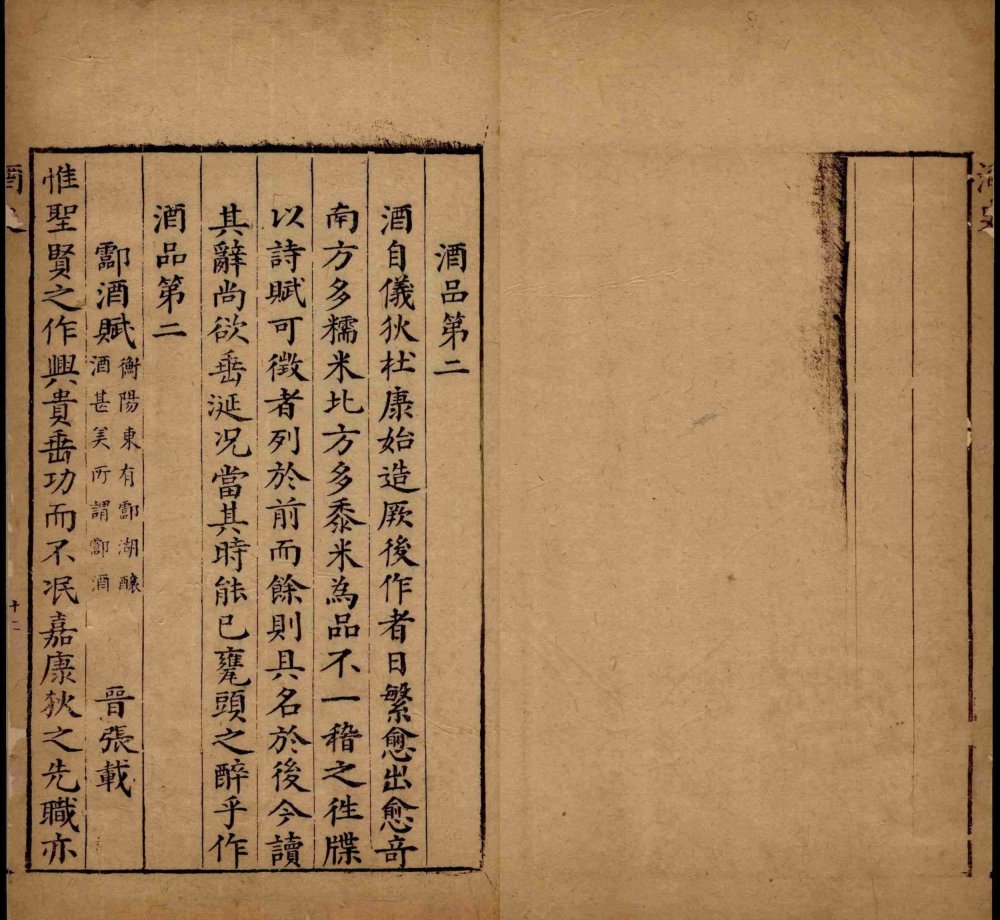 酒品第二
酒自儀狄杜康始造厥後作者日繁愈出愈竒
南方多糯米北方多黍米為品不一稽之徃牒
以詩賦可徴者列於前而餘則具名於後今讀
其辭尚欲垂涎况當其時能已甕頭之醉乎作
酒品第二
酃酒賦
衡陽東有酃湖釀
酒甚美所謂酃酒
晉張載
惟聖賢之作興貴垂功而不泯嘉康狄之先職亦
十二